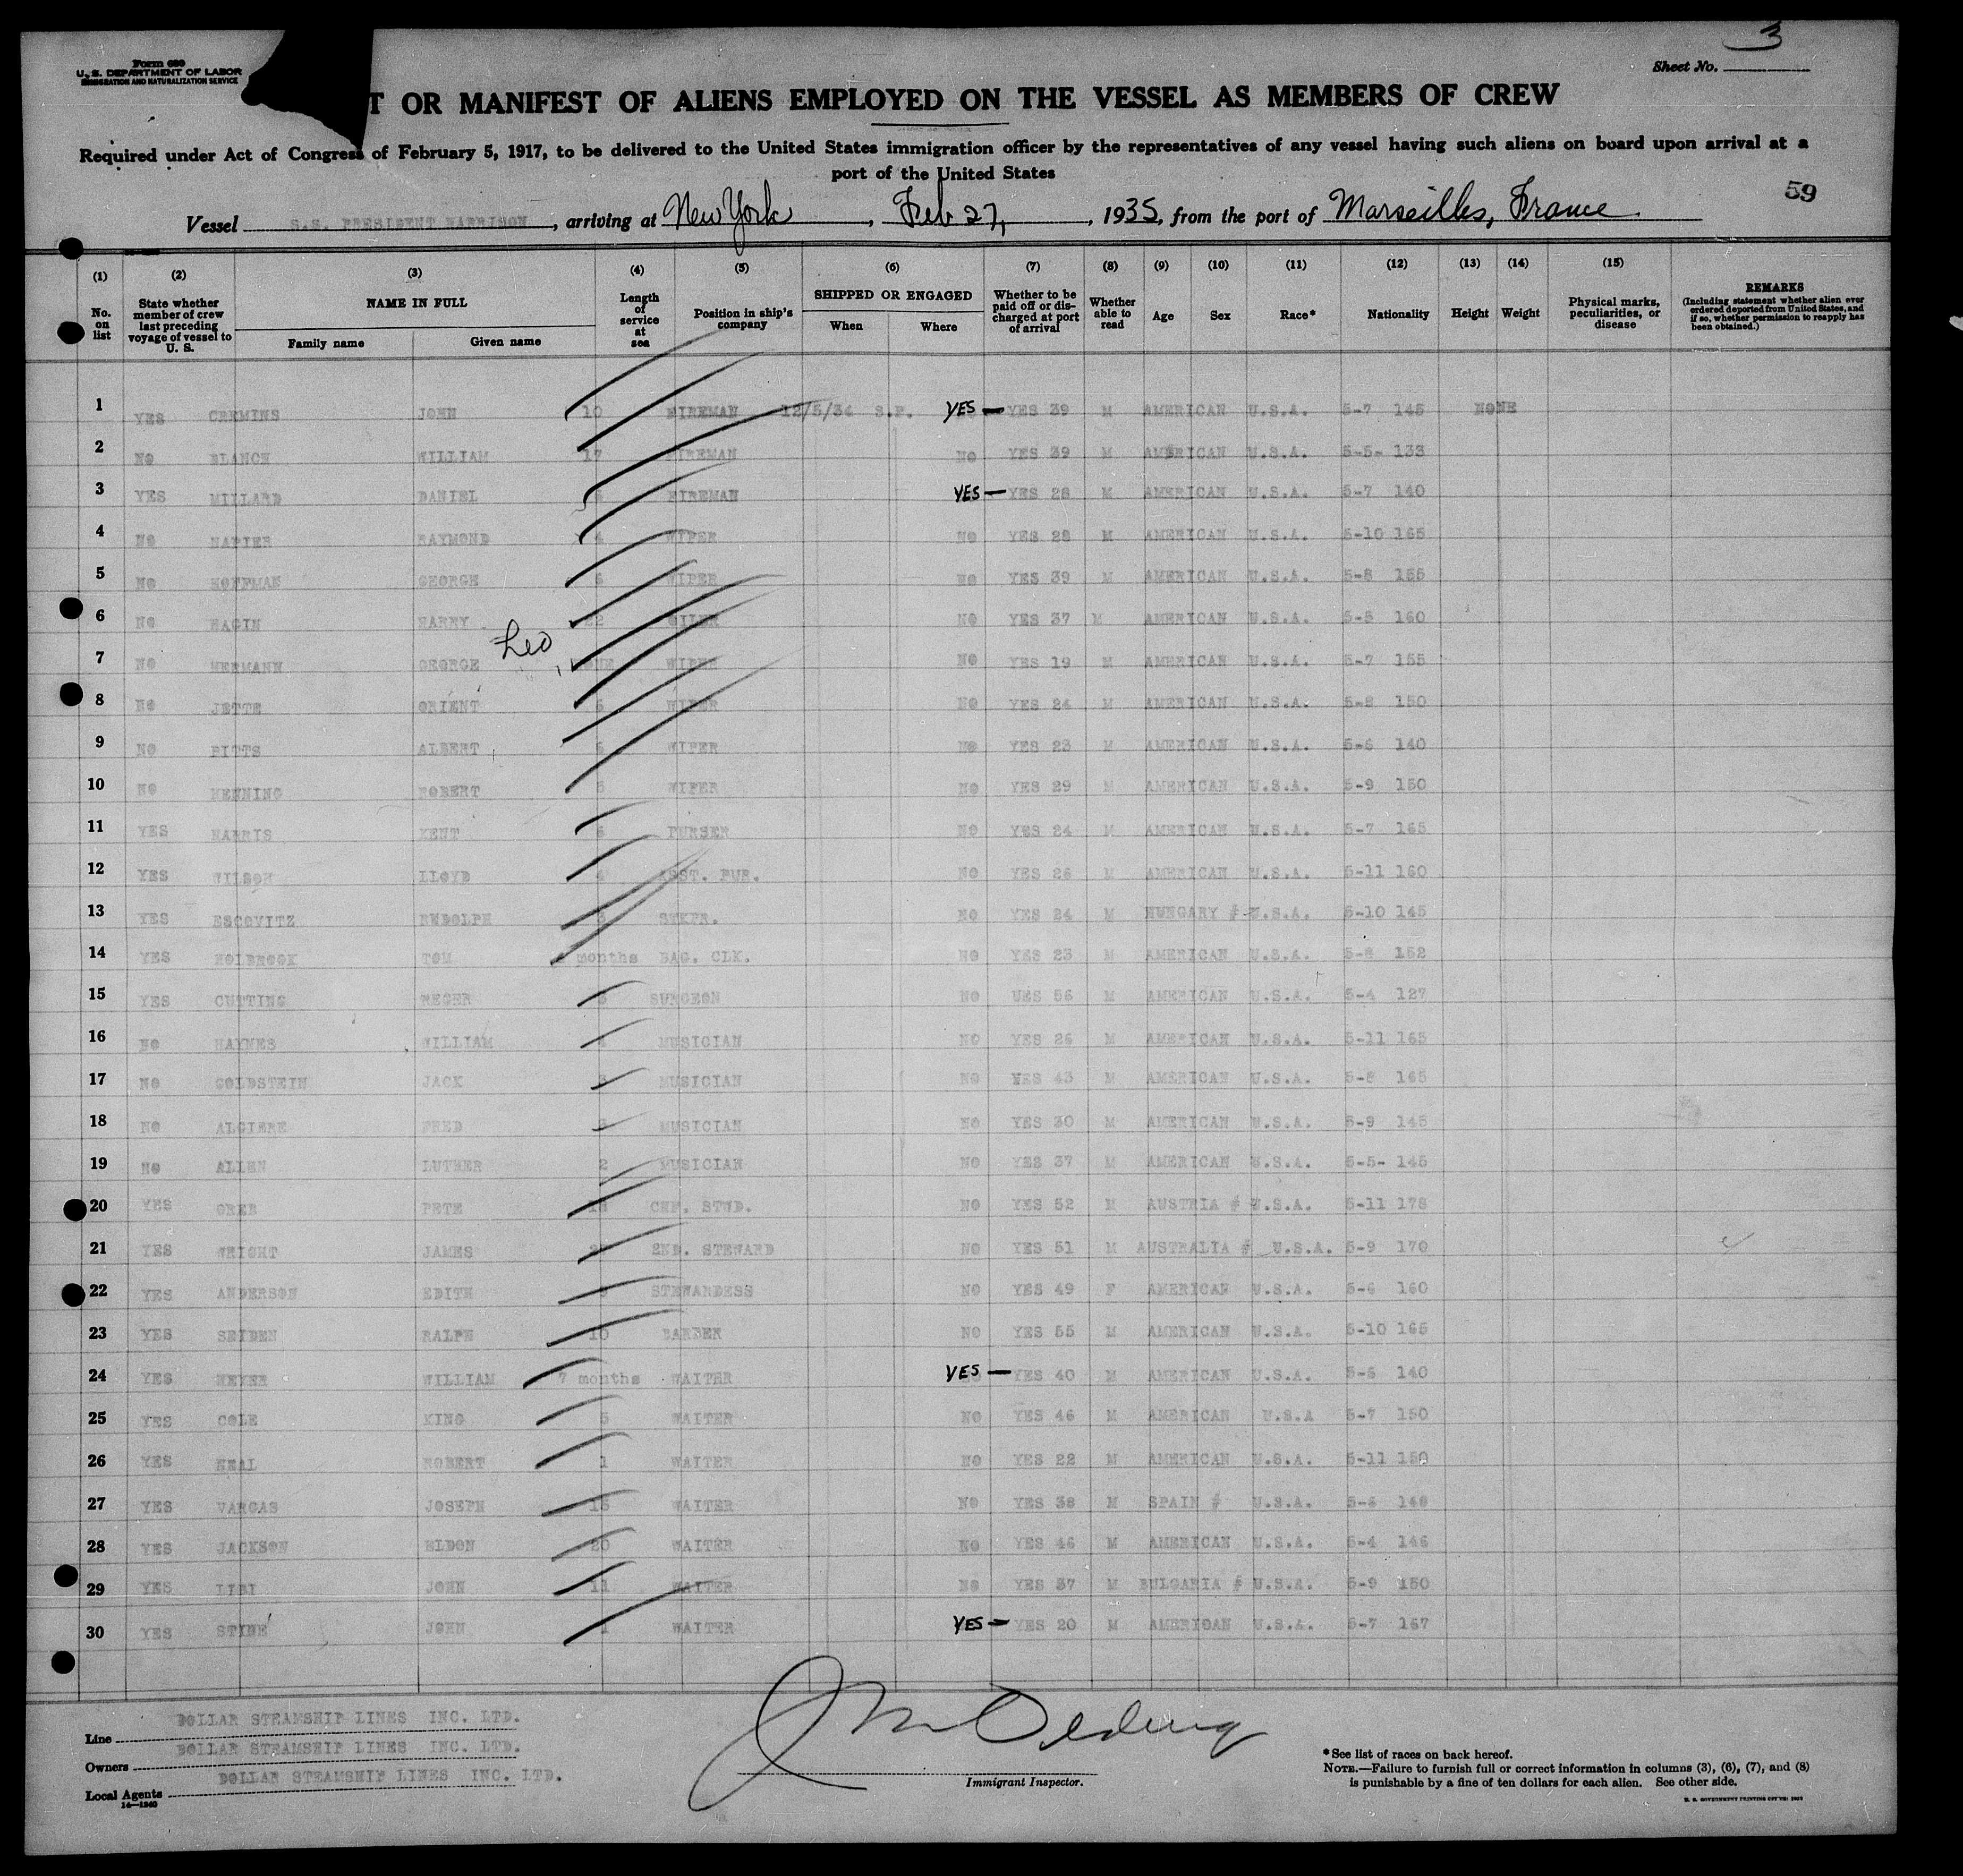 3
Form 680
U. S. DEPARTMENT OF LABOR
IMMIGRATION AND NATURALIZATION SERVICE
Sheet No.
T OR MANIFEST OF ALIENS EMPLOYED ON THE VESSEL AS MEMBERS OF CREW
Required under Act of Congress of February 5, 1917, to be delivered to the United States immigration officer by the representatives of any vessel having such aliens on board upon arrival at a
port of the United States
59
Vessel S.S. PRESIDENT HARRISON, arriving at New York, Feb 27, 1935, from the port of Marseilles, France.
(1) (2) (3) (4) (5) (6) (7) (8) (9) (10) (11) (12) (13) (14) (15)
No. on list
State whether member of crew last preceding voyage of vessel to U. S.
NAME IN FULL
Family name Given name
Length of service at sea
Position in ship's company
SHIPPED OR ENGAGED
When Where
Whether to be paid off or discharged at port of arrival
Whether able to read
Age Sex Race* Nationality Height Weight
Physical marks, peculiarities, or disease
REMARKS
(Including statement whether alien ever ordered deported from United States, and if so, whether permission to reapply has been obtained.)
1 YES CREMINS JOHN 10 FIREMAN 12/5/34 S.F. YES — YES 39 M AMERICAN U.S.A. 5-7 145 NONE
2 NO BLANCH WILLIAM 17 FIREMAN NO YES 39 M AMERICAN U.S.A. 5-5- 133
3 YES MILLARD DANIEL FIREMAN YES — YES 28 M AMERICAN U.S.A. 5-7 140
4 NO NAPIER RAYMOND 4 WIPER NO YES 28 M AMERICAN U.S.A. 5-10 165
5 NO HOFFMAN GEORGE WIPER NO YES 39 M AMERICAN U.S.A. 5-8 155
6 NO HAGIN HARRY OILER NO YES 37 M AMERICAN U.S.A. 5-5 160
7 NO HERMANN GEORGE Leo NONE WIPER NO YES 19 M AMERICAN U.S.A. 5-7 155
8 NO JETTE ORIENT WIPER NO YES 24 M AMERICAN U.S.A. 5-8 150
9 NO PITTS ALBERT WIPER NO YES 23 M AMERICAN U.S.A. 5-6 140
10 NO HENNING ROBERT WIPER NO YES 29 M AMERICAN U.S.A. 5-9 150
11 YES HARRIS KENT PURSER NO YES 24 M AMERICAN U.S.A. 5-7 165
12 YES WILSON LLOYD 4 ASST. PUR. NO YES 26 M AMERICAN U.S.A. 5-11 160
13 YES ESCOVITZ RUDOLPH STKPR. NO YES 24 M HUNGARY # U.S.A. 5-10 145
14 YES HOLBROOK TOM months BAG. CLK. NO YES 23 M AMERICAN U.S.A. 5-8 152
15 YES CUTTING REGER SURGEON NO UES 56 M AMERICAN U.S.A. 5-4 127
16 NO HAYNES WILLIAM MUSICIAN NO YES 26 M AMERICAN U.S.A. 5-11 165
17 NO GOLDSTEIN JACK MUSICIAN NO YES 43 M AMERICAN U.S.A. 5-8 165
18 NO ALGIERE FRED MUSICIAN NO YES 30 M AMERICAN U.S.A. 5-9 145
19 NO ALLEN LUTHER 2 MUSICIAN NO YES 37 M AMERICAN U.S.A. 5-5- 145
20 YES ORER PETE CHF. STWD. NO YES 52 M AUSTRIA # U.S.A. 5-11 178
21 YES WRIGHT JAMES 2ND. STEWARD NO YES 51 M AUSTRALIA # U.S.A. 5-9 170
22 YES ANDERSON EDITH STEWARDESS NO YES 49 F AMERICAN U.S.A. 5-6 160
23 YES SEIDEN RALPH 10 BARBER NO YES 55 M AMERICAN U.S.A. 5-10 165
24 YES MEYER WILLIAM 7 months WAITER YES — YES 40 M AMERICAN U.S.A. 5-6 140
25 YES COLE KING 5 WAITER NO YES 46 M AMERICAN U.S.A 5-7 150
26 YES NEAL ROBERT 1 WAITER NO YES 22 M AMERICAN U.S.A. 5-11 150
27 YES VARGAS JOSEPH 15 WAITER NO YES 38 M SPAIN # U.S.A. 5-6 148
28 YES JACKSON ELDON 20 WAITER NO YES 46 M AMERICAN U.S.A. 5-4 146
29 YES JOHN 11 WAITER NO YES 37 M BULGARIA # U.S.A. 5-9 150
30 YES STINE JOHN 1 WAITER YES — YES 20 M AMERICAN U.S.A. 5-7 157
Line DOLLAR STEAMSHIP LINES INC. LTD.
Owners DOLLAR STEAMSHIP LINES INC. LTD.
Local Agents DOLLAR STEAMSHIP LINES INC. LTD.
14—1240
Immigrant Inspector.
*See list of races on back hereof.
NOTE.—Failure to furnish full or correct information in columns (3), (6), (7), and (8)
is punishable by a fine of ten dollars for each alien. See other side.